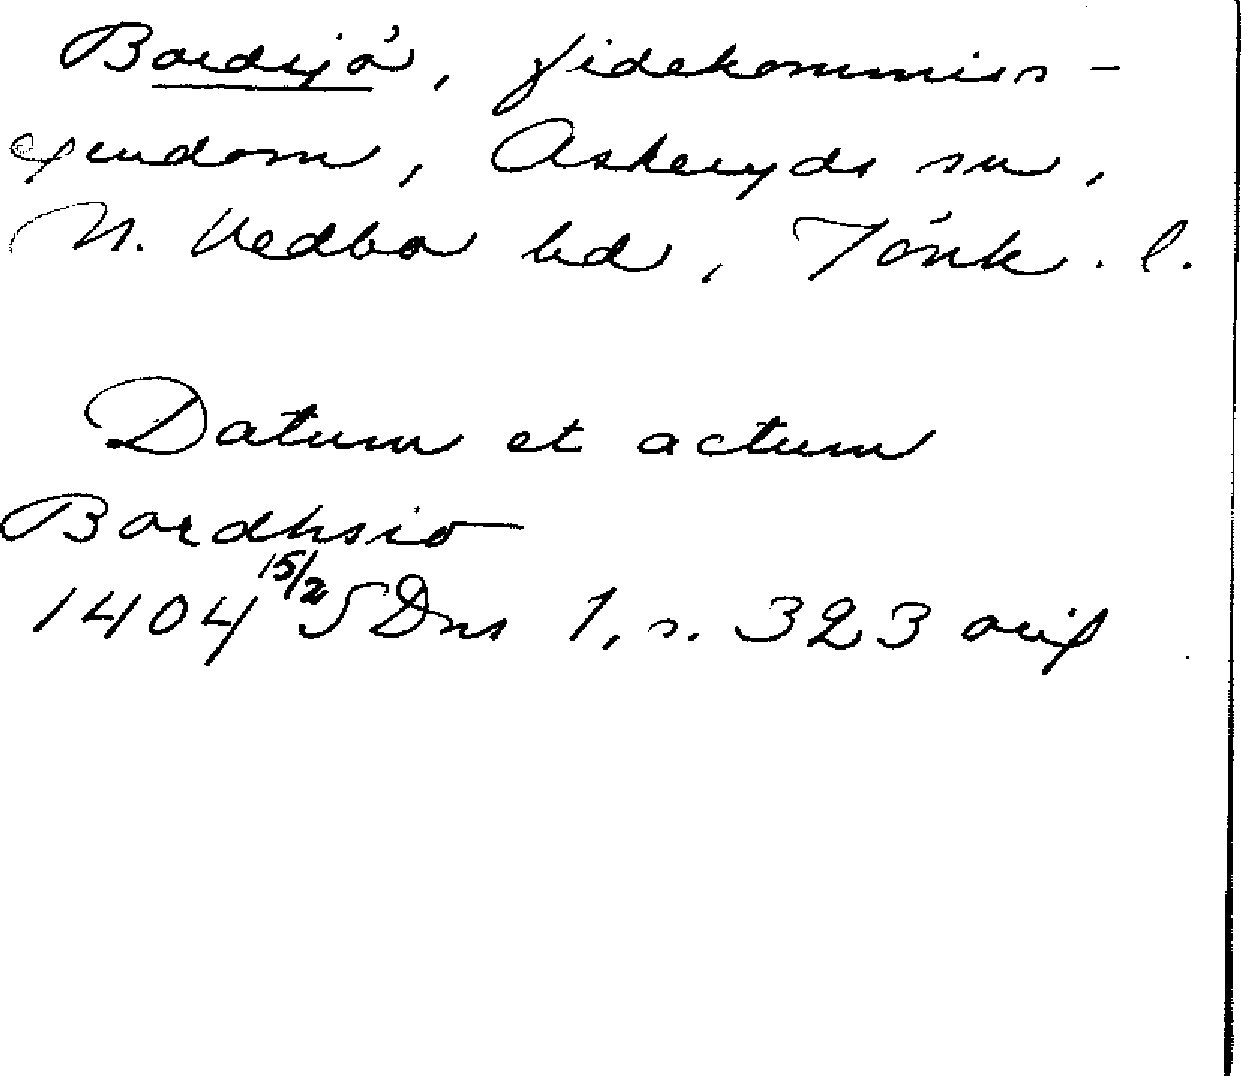 Bordsjö, fideikommiss-
egendom, Askeryds sn,
N. Vedbo hd, Jönk. l.
Datum et actum
Bordhsio
1404 15/2 SDns 1, s. 323 avs